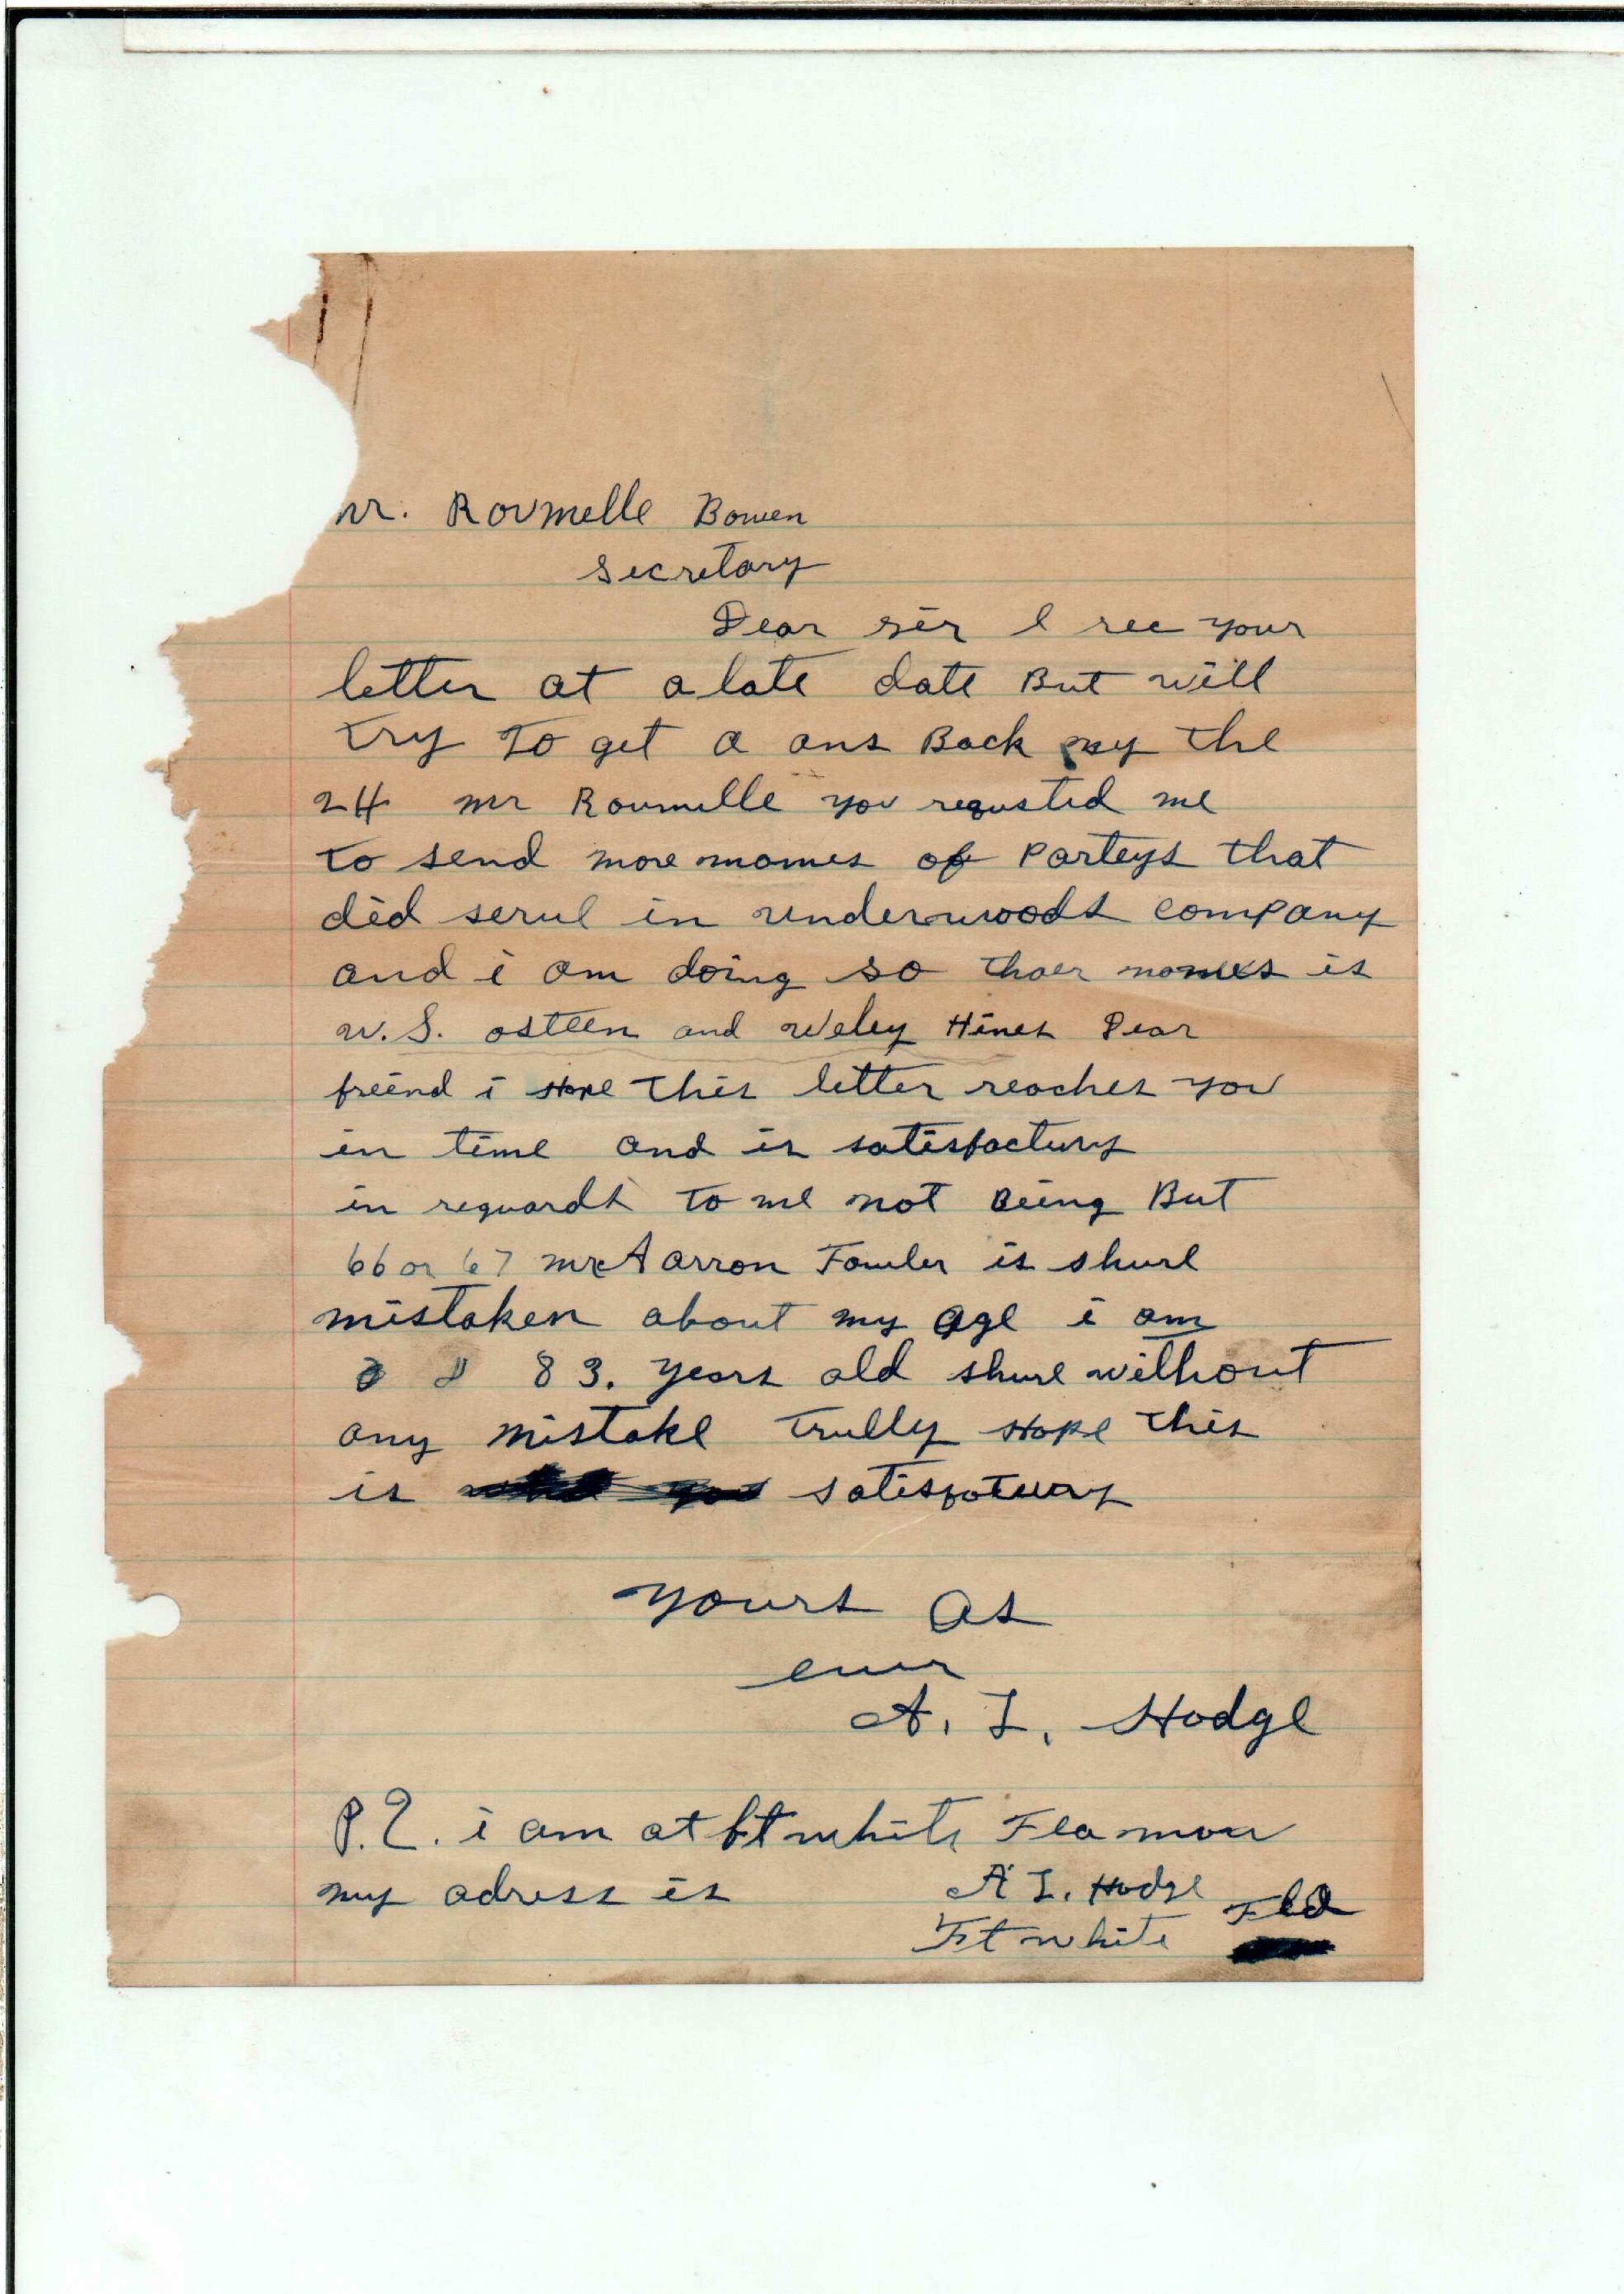 Mr. Rovmelle Bowen
secretary
Dear sir I rec your
letter at a late date But will
try To get a ans Back by the
24 mr Roumelle you requsted me
to send more names of Parteys that
did serve in underwoods company
and i am doing so thaer names is
W. S. osteen and Weley Hines Dear
freind i Hope this letter reaches you
in time and is satisfactury
in reguards to me not Being But
66 or 67 mr Aarron Fowler is shure
mistaken about my age i am
83. years old shure without
any mistake trully Hope this
is satisfatuary
yours as
ever
A. L. Hodge
P.S. i am at ft white Fla now
my adress is A L. Hodge
Ft white Fla